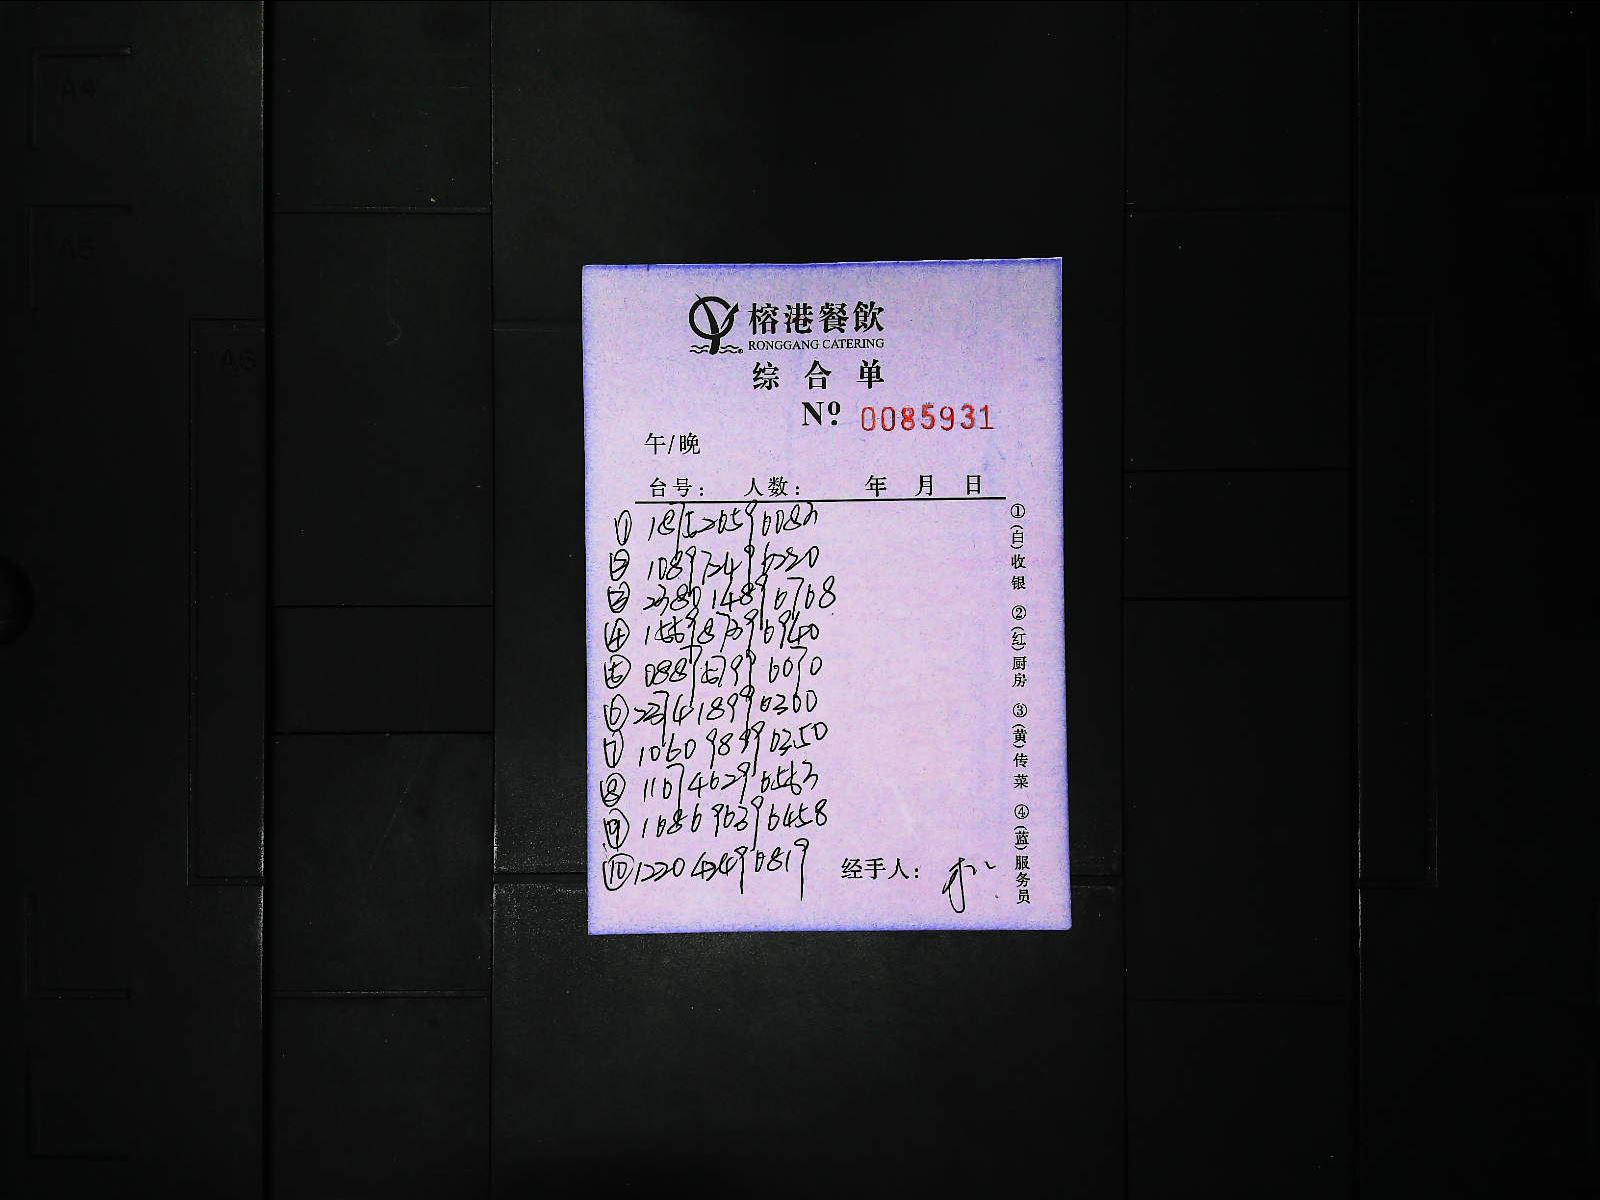 榕港餐飲
RONGGANG CATERING
综合单
Nº 0085931
午/晚
台号： 人数： 年 月 日
① 187526596083
② 108972496220
③ 238014896768
④ 155987396940
⑤ 088757996070
⑥ 227418990300
⑦ 106098990350
⑧ 116746296563
⑨ 168696396458
⑩ 122042490819
经手人：
①(白)收银 ②(红)厨房 ③(黄)传菜 ④(蓝)服务员
A4
A5
A6